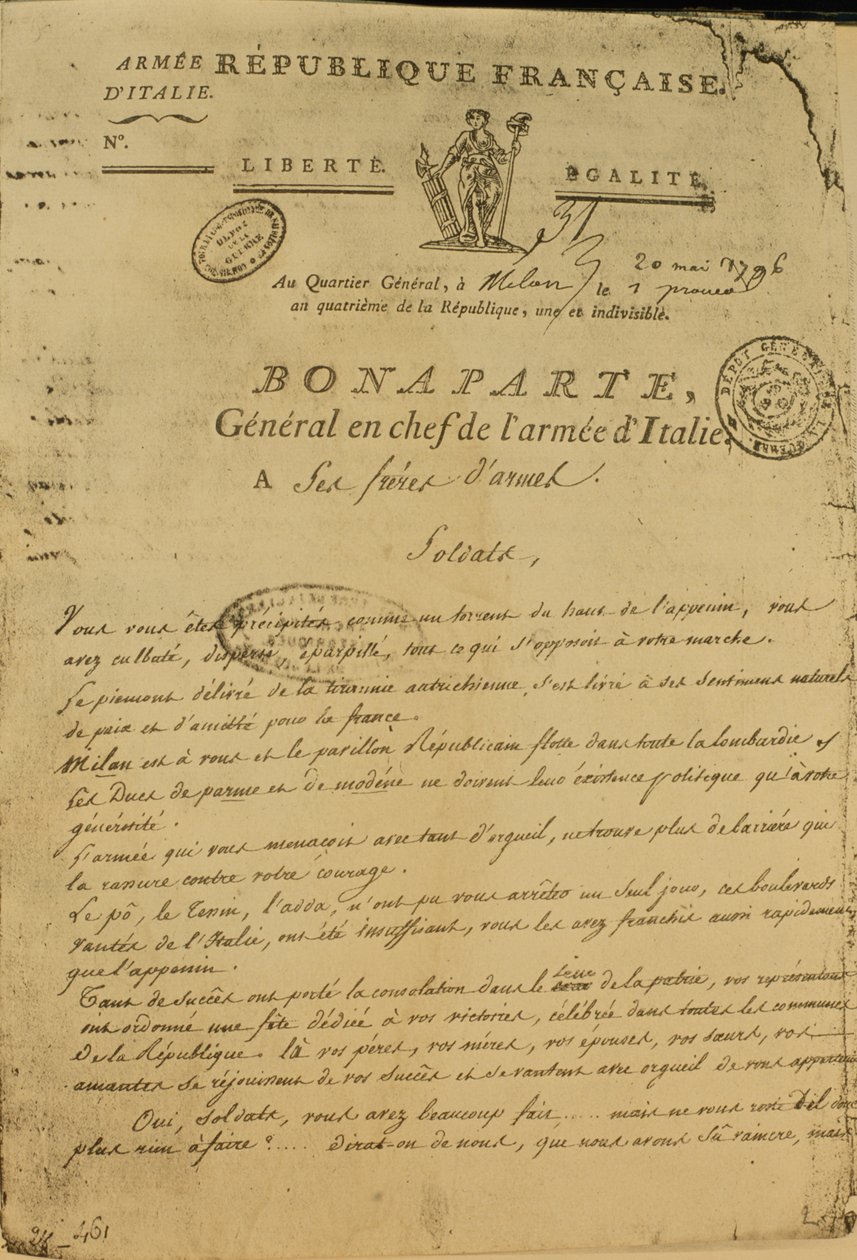 ARMÉE
D'ITALIE.
RÉPUBLIQUE FRANÇAISE.
Nº.
LIBERTÉ.
EGALITÉ.
31
DÉPOT
DE LA
GUERRE
20 mai 1796
Au Quartier Général, à Milan le 1 prairial
an quatrième de la République, une et indivisible.
DÉPÔT GÉNÉRAL DE LA GUERRE
BONAPARTE,
Général en chef de l'armée d'Italie.
A Ses fréres d'armes.
Soldats,
Vous vous êtes précipités, comme un torrent du haut de l'appenin, vous
avez culbuté, dispersé, éparpillé, tout ce qui s'opposoit à votre marche.
Le piemont délivré de la tirannie autrichienne, s'est livré à ses sentimens naturels
de paix et d'amitié pour la france.
Milan est à vous et le pavillon Républicain flotte dans toute la lombardie
Les Ducs de parme et de modéne ne doivent leur éxistence politique qu'à votre
générosité.
L'armée qui vous menaçoit avec tant d'orgueil, ne trouve plus de barriére qui
la rassure contre votre courage.
Le pô, le Tesin, l'adda, n'ont pu vous arrêter un seul jour, ces boulevards
vantés de l'Italie, ont été insuffisant, vous les avez franchis aussi rapidement
que l'appenin.
Tant de succês ont porté la consolation dans le sein de la patrie, vos représentans
ont ordonné une fête dédiée à vos victoires, célébrée dans toutes les communes
de la République. là vos péres, vos méres, vos épouses, vos sœurs, vos
amantes se réjouissent de vos succês et se vantent avec orgueil de vous appartenir
Oui, soldats, vous avez beaucoup fait ..... mais ne vous reste t'il donc
plus rien à faire? .... dirat-on de nous, que nous avons sû vaincre, mais
461